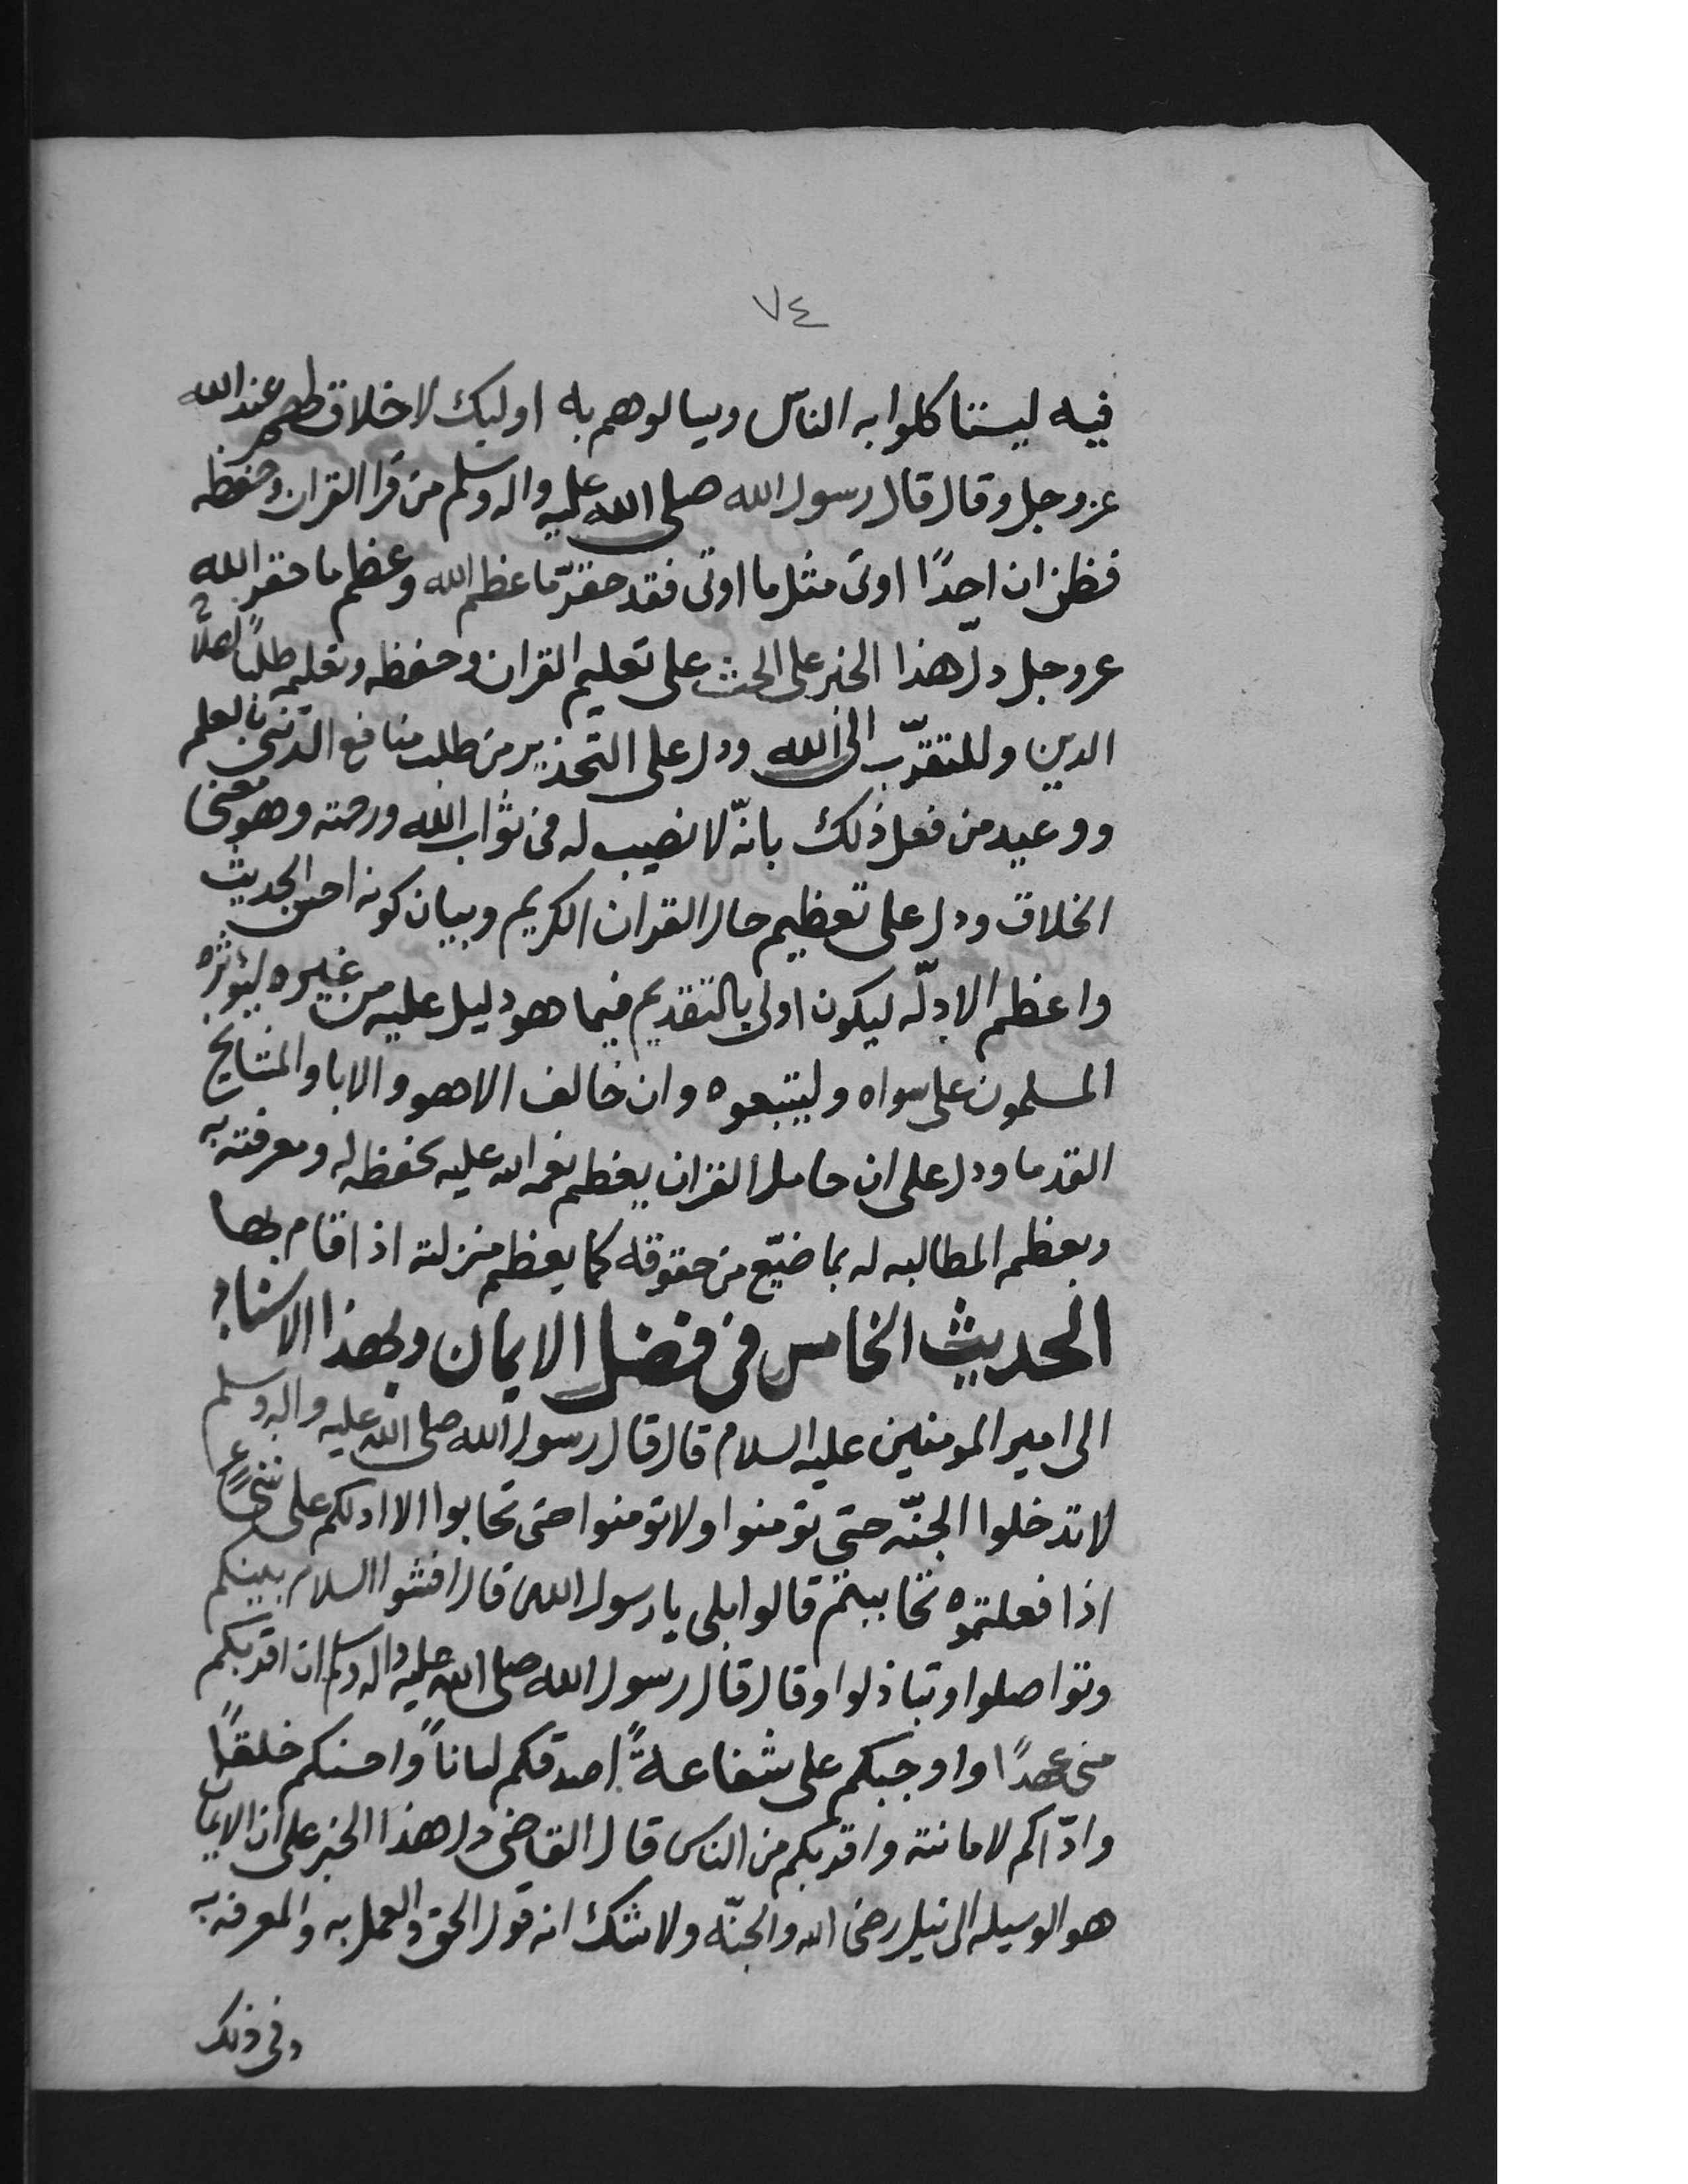 ٧٤
فيه ليستاكلوا به الناس ويسالوهم به اوليك لاخلاق لهم عند الله
عز وجل وقال قال رسول الله صلى الله عليه واله وسلم من قرا القران وحفظه
فظن ان احدًا اوتى مثل ما اوتى فقد حقّر ما عظم الله وعظم ما حقر الله
عز وجل دلّ هذا الخبر على الحث على تعليم القران وحفظه وتعلمه طلبًا
الدين وللتقرّب الى الله ودل على التحذير من طلب منافع الدنيى بالعلم
ووعيد من فعل ذلك بانّه لا نصيب له فى ثواب الله ورحمته وهو معنى
الخلاق ودل على تعظيم حال القران الكريم وبيان كونه احسن الحديث
واعظم الادلّه ليكون اولى بالتقديم فيما هو دليل عليه من غيره ليؤثره
المسلمون على سواه وليتبعوه وان خالف الاهوو الابا والمشايخ
القدما ودل على ان حامل القران يعظم نعم الله عليه بحفظه له ومعرفته به
ويعظم المطالبه له بما ضيّع من حقوقه كما يعظم منزلته اذا قام بها
الحديث الخامس فى فضل الايمان وبهذا الاسناد
الى امير المومنين عليه السلام قال قال رسول الله صلى الله عليه واله وسلم
لا تدخلوا الجنّه حتى تومنوا ولا تومنوا حتى تحابوا الا ادلكم على شىءٍ
اذا فعلتموه تحاببتم قالوا بلى يا رسول الله قال افشوا السلام بينكم
وتواصلوا وتباذلوا وقال قال رسول الله صلى الله عليه واله وسلم ان اقربكم
منى عهدًا واوجبكم على شفاعةً اصدقكم لساناً واحسنكم خلقًا
وادّاكم لامانته واقربكم من الناس قال القاضى دل هذا الخبر على ان الايمان
هو الوسيله الى نيل رضى الله والجنّه ولا شك انه قول الحق والعمل به والمعرفه به
وفى ذلك